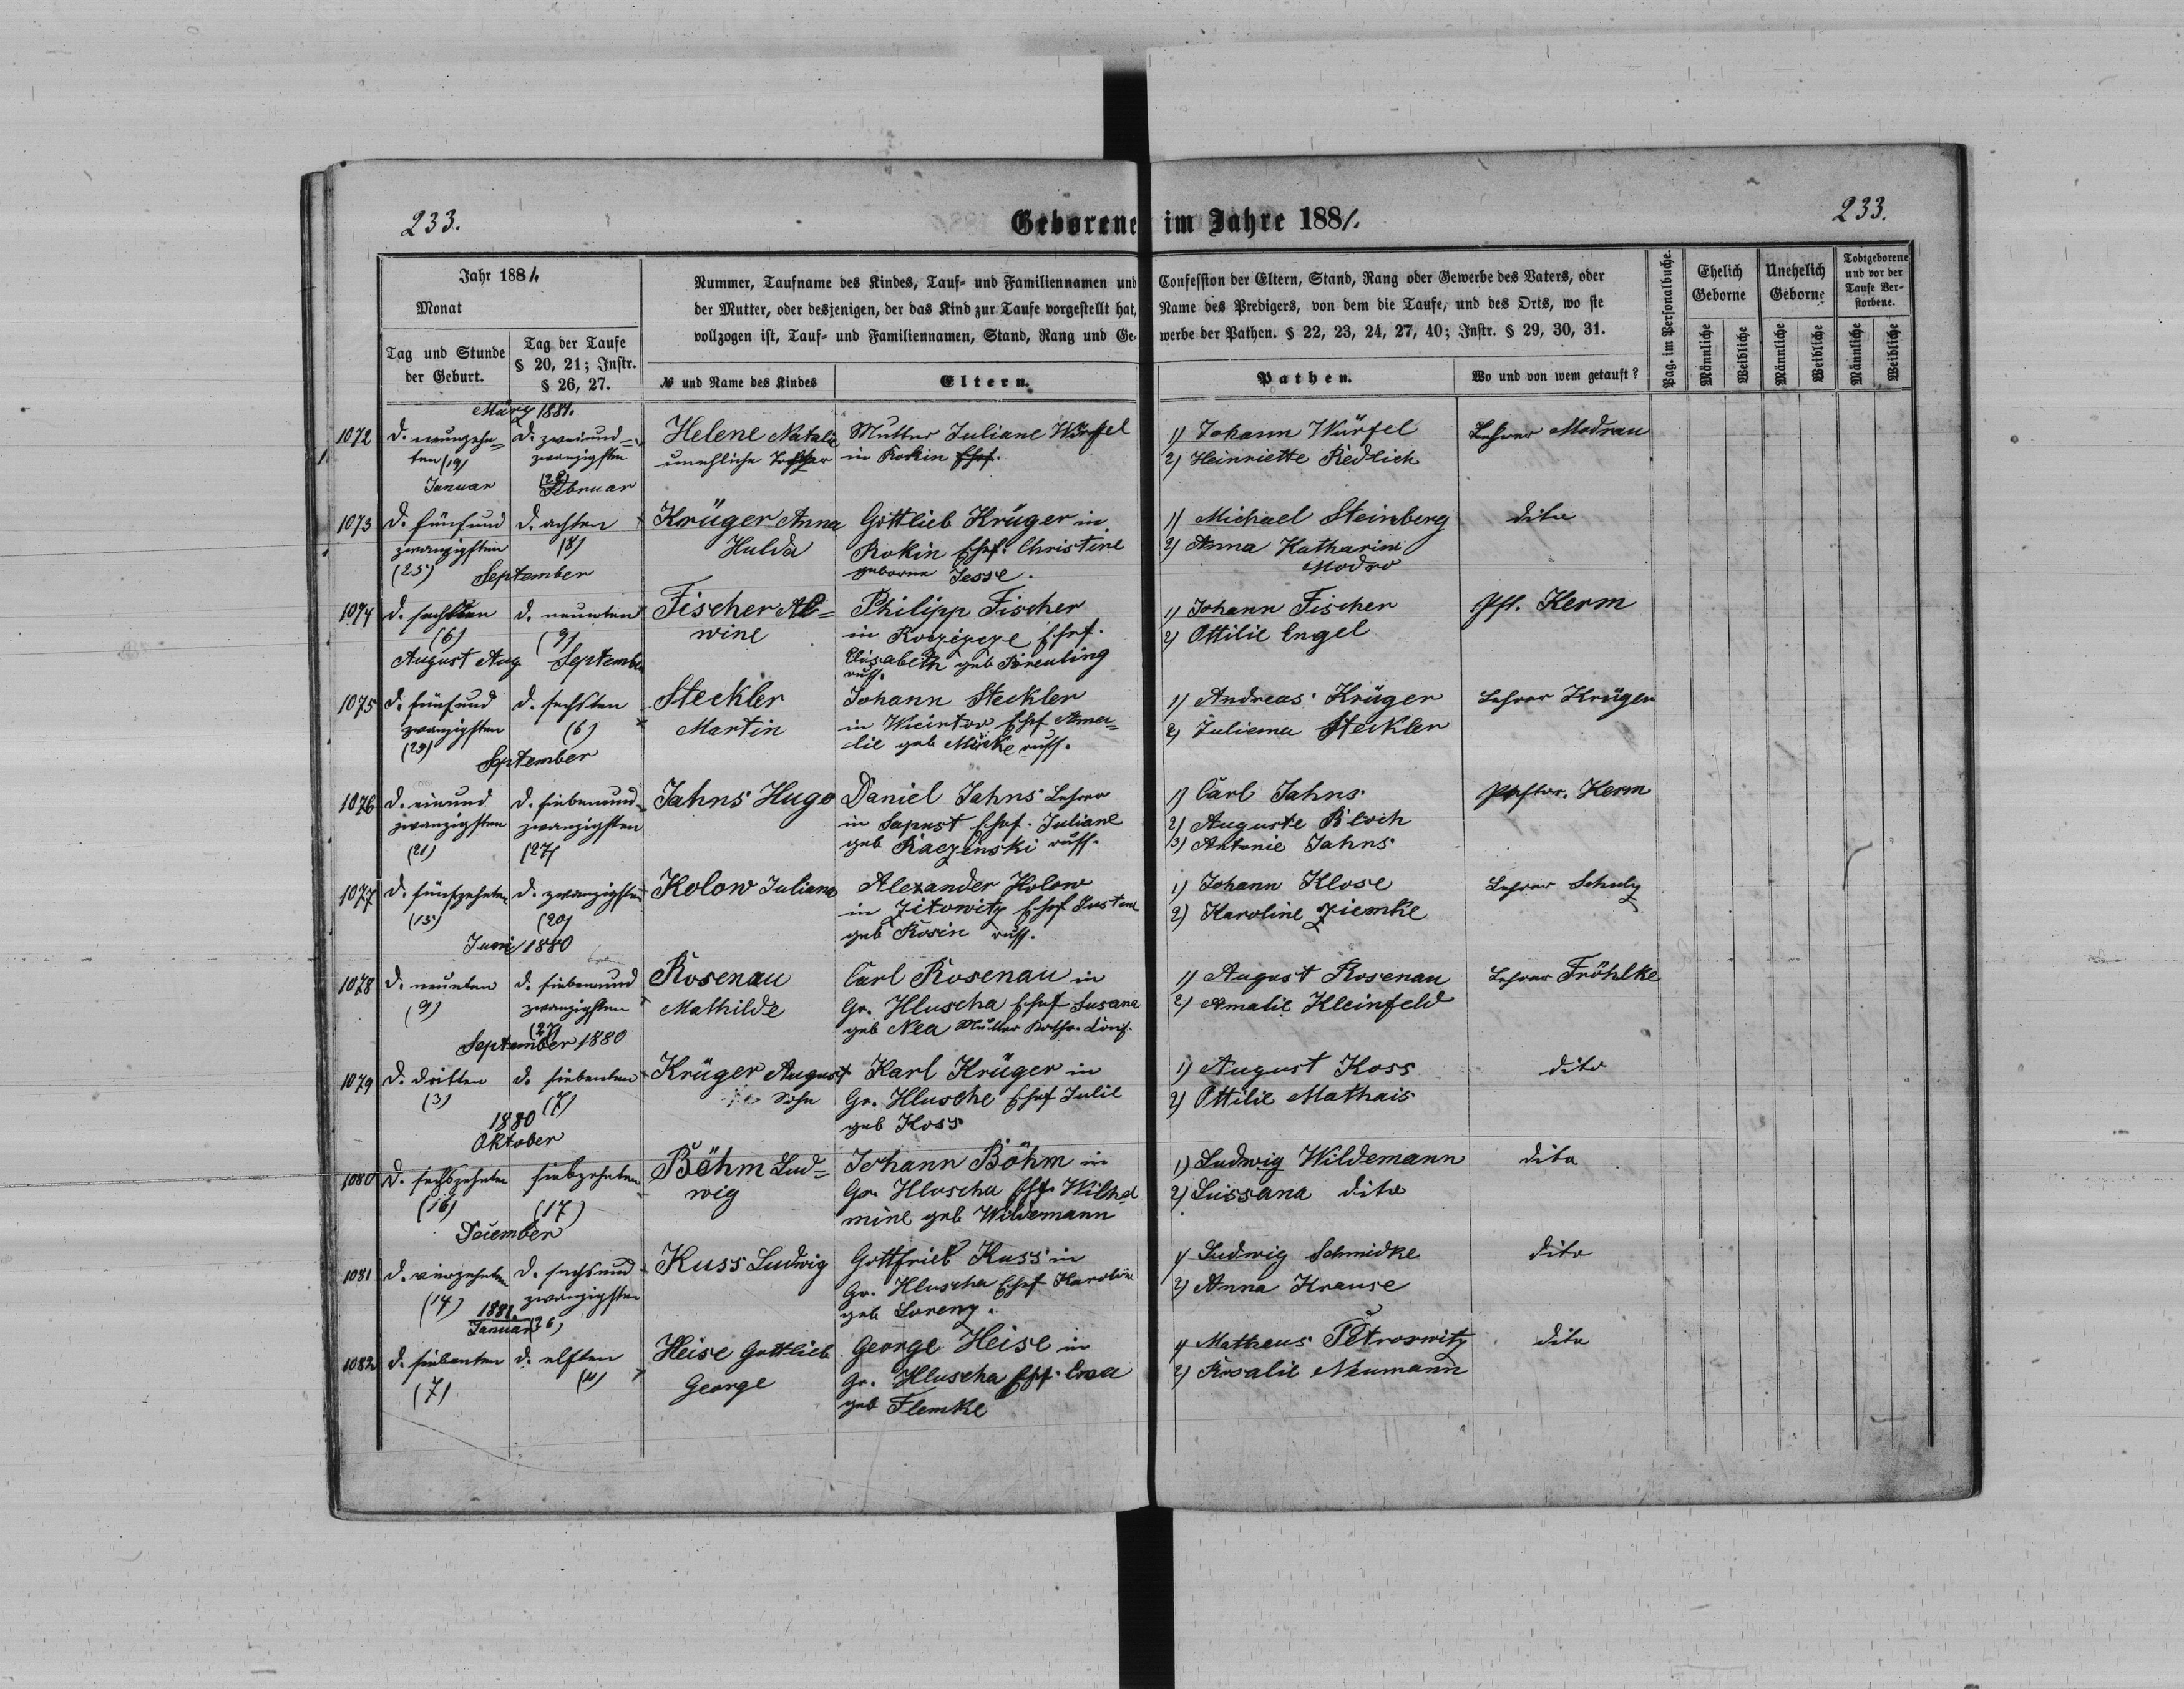 233.
Geborene im Jahre 1881.
233.
Jahr 1881.
Monat
Tag und Stunde der Geburt.
Tag der Taufe § 20, 21; Instr. § 26, 27.
Nummer, Taufname des Kindes, Tauf- und Familiennamen und
der Mutter, oder desjenigen, der das Kind zur Taufe vorgestellt hat,
vollzogen ist, Tauf- und Familiennamen, Stand, Rang und Ge-
№ und Name des Kindes
Eltern.
Confession der Eltern, Stand, Rang oder Gewerbe des Vaters, oder
Name des Predigers, von dem die Taufe, und des Orts, wo sie
werbe der Pathen. § 22, 23, 24, 27, 40; Instr. § 29, 30, 31.
Pathen.
Wo und von wem getauft?
Pag. im Personalbuche.
Ehelich Geborne
Unehelich Geborne
Todtgeborene und vor der Taufe Verstorbene.
Männliche
Weibliche
Männliche
Weibliche
Männliche
Weibliche
März 1881.
1072 d. neunzehn= d. zweiund= Helene Natalie Mutter Juliane Würfel 1) Johann Würfel Lehrer Modrau
ten (19) zwanzigsten unehliche Tochter in Rokin Ehef. 2) Heinriette Redlich
Januar Februar
1073 d. fünfund d. achten Krüger Anna Gottlieb Krüger in 1) Michael Steinberg dito
zwanzigsten (8) Hulda Rokin Ehef. Christine 2) Anna Katharine
(25) September geborne Jesse. Modro
1074 d. sechsten d. neunten Fischer Al= Philipp Fischer 1) Johann Fischer Pst. Kerm
(6) (9) wine in Ehef. 2) Ottilie Engel
August Aug September Elisabeth geb Breuling
russ.
1075 d. fünfund d. sechsten Steckler Johann Steckler 1) Andreas Krüger Lehrer Krüger
zwanzigsten (6) Martin in Ehef Ama= 2) Juliema Steckler
(25) September lie geb Mücke russ.
1076 d. einund d. siebenund= Jahns Hugo Daniel Jahns Lehrer 1) Carl Jahns Pastor. Kerm
zwanzigsten zwanzigsten in Sapust Ehef. Juliane 2) Auguste Bloch
(21) (27) geb Raczinski russ. 3) Antonie Jahns
1077 d. fünfzehnten d. zwanzigsten Kolow Juliane Alexander Kolow 1) Johann Klose Lehrer Schulz
(15) (20) in Zitowitz Ehef Justine 2) Karoline Ziemke
Juni 1880 geb Rosin russ.
1078 d. neunten d. siebenund Rosenau Carl Rosenau in 1) August Rosenau Lehrer Fröhlke
(9) zwanzigsten Mathilde Gr. Hluscha Ehef Susana 2) Amalie Kleinfeld
(27) geb Nea Mutter
September 1880
1079 d. dritten d. siebenten Krüger August Karl Krüger in 1) August Koss dito
(3) (7) Sohn Gr. Hlusche Ehef Julie 2) Ottilie Mathais
1880 geb Koss
Oktober
1080 d. sechszehnten siebzehnten Böhm Lud= Johann Böhm in 1) Ludwig Wildemann dito
(16) (17) wig Gr. Hluscha Ehf. Wilhel 2) Suissana dito
December mine geb Wildemann
1081 d. vierzehnten d. sechsund Kuss Ludwig Gottfried Kuss in 1) Ludwig Schmidke dito
(14) zwanzigsten Gr. Hluscha Ehef Karoline 2) Anna Krause
1881. (26) geb Lorenz.
Januar
1082 d. siebenten d. elften Heise Gottlieb George Heise in 1) Matheus Petroswitz dito
(7) (11) George Gr. Hluscha Ehf. Eva 2) Rosalie Neumann
geb Flemke